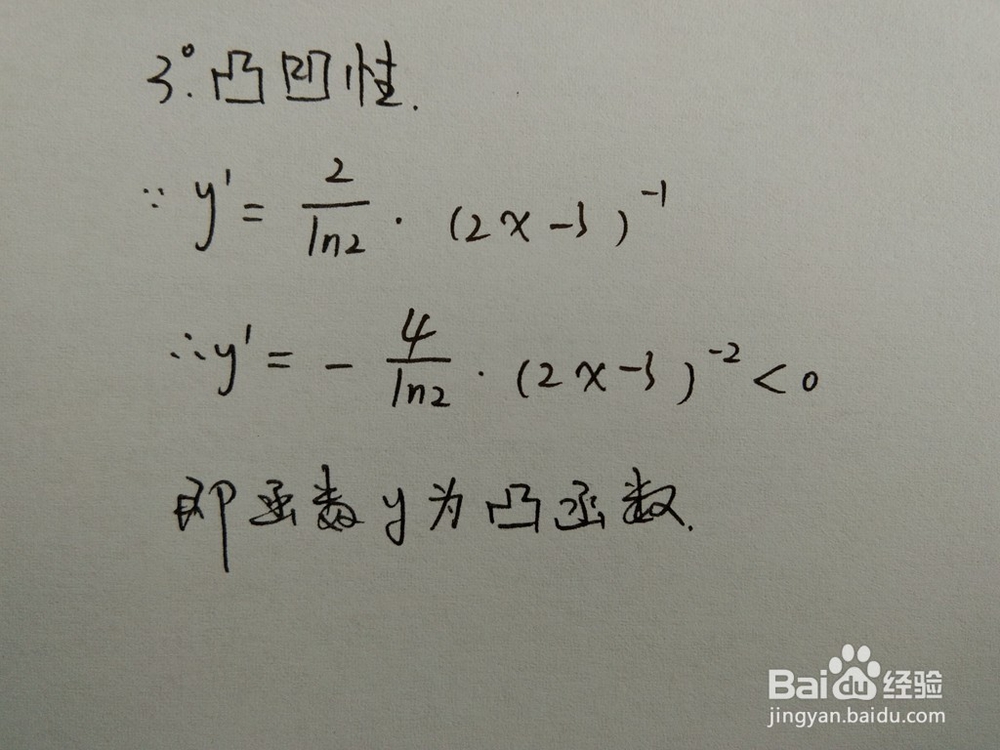 3°.凸凹性.
∵ y' = 2/ln2 · (2x-3)^-1
∴ y' = - 4/ln2 · (2x-3)^-2 < 0
即函数y为凸函数.
Baidu经验
jingyan.baidu.com